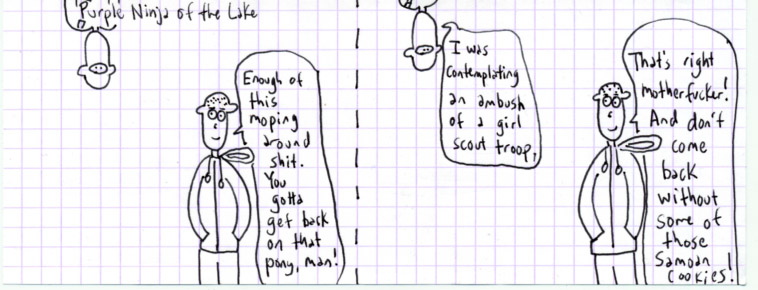 Purple Ninja of the Lake
Enough of
this
moping
around
shit.
You
gotta
get back
on that
pony, man!
I was
contemplating
an ambush
of a girl
scout troop,
That's right
motherfucker!
And don't
come
back
without
some of
those
Samoan
cookies!